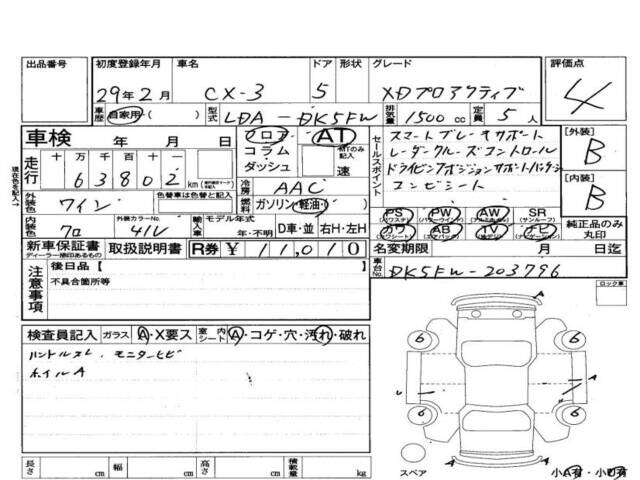 出品番号 初度登録年月 車名 ドア 形状 グレード 評価点
29年2月 CX-3 5 XDプロアクティブ 4
車歴 自家用( ) 型式 LDA-DK5FW 排気量 1500cc 定員 5人
車検 年 月 日 フロア AT
コラム MTのみ記入
ダッシュ 速
セールスポイント スマートブレーキサポート
レーダークルーズコントロール
ドライビングポジションサポートパッケージ
コンビシート
[外装] B
[内装] B
現在色を記入→
走行 十 万 千 百 十 一
63802 km
冷房 AAC
外装色 ワイン 色替車は元色
燃料 ガソリン・軽油・( )
内装色 クロ 外装カラーNo. 41V 輸入車 モデル年式 年・不明 D車・並 右H・左H
PS (パワステ) PW (パワーウインドウ) AW (アルミホイール) SR (サンルーフ)
カワ (カワシート) AB (エアバッグ) TV (地デジ) ナビ (ナビゲーション)
純正品のみ丸印
新車保証書 ディーラー捺印あるもの 取扱説明書 R券 ¥ 11,010
名変期限 月 日迄
注意事項 後日品【
不具合箇所等
車台No. DK5FW-203796
ロック車
検査員記入 ガラス A・X要ス 室内シート A・コゲ・穴・汚れ・破れ
ハンドルスレ モニターヒビ
ホイルA
A
6 6
A
6 6
A
スペア
小A有・小U有
長さ cm 幅 cm 高さ cm 積載量 kg